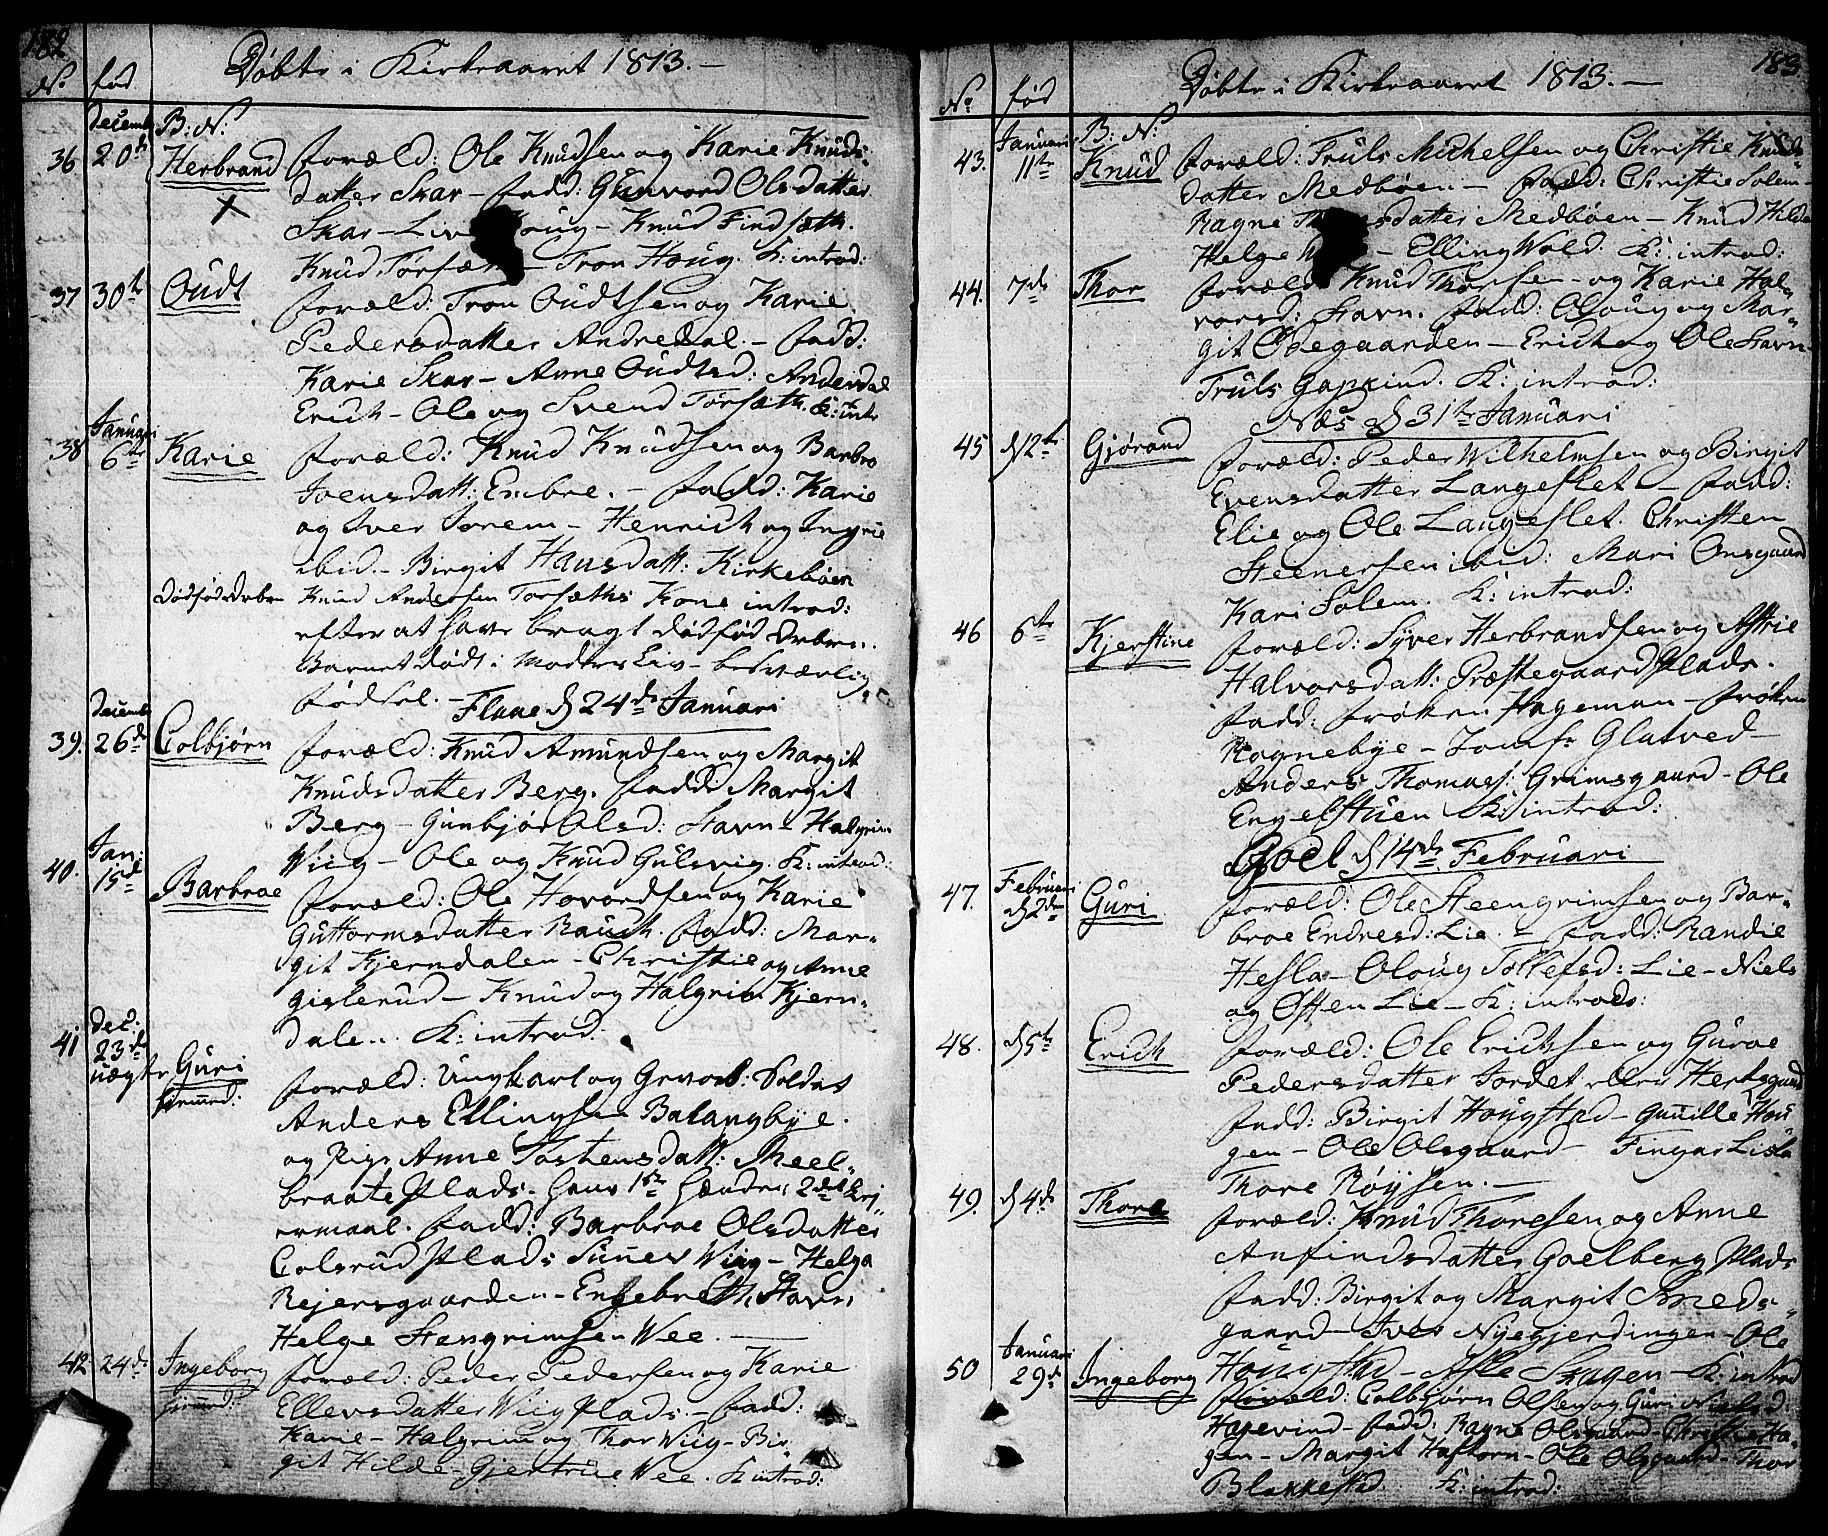 182
Døbte i Kirkeaaret 1813. —
No. fød
Decemb. B: N:
36 20de Herbrand Foræld: Ole Knudsen og Karie Knuds-
datter Skar – fadd: Gunvord Olsdatter
Skar – Live Houg – Knud Findsæth.
Knud Torsæth – Tron Houg. K: introd:
37 30te Oudt Foræld: Tron Oudtsen og Karie
Pedersdatter Andredal. – fadd:
Karie Skar – Anne Oudtsd: Anderdal
Erich – Ole og Svend Torsæth. K: int
Januari
38 6te Karie Foræld: Knud Knudsen og Barbro
Joensdatt: Embre. – fadd: Karie
og Iver Sorem – Henrich og Ingrie
ibid. – Birgit Hansdatt: Kirkebøen
Dødfødt Drbrn Knud Andersen Torsæths Kone introd:
efter at have bragt dødfød Drbrn.
Barnet døde i Moders Liv – besværlig
fødsel.
Flaae d 24de Januari
Decemb
39. 26de Colbjørn Foræld: Knud Amundsen og Margit
Knudsdatter Berg. fadd: Margit
Berg – Gunbjør Olsd: Stavn – Halgrim
Wiig – Ole og Knud Gulsvig. K: introd:
Jan:
40. 15de Barbroe Foræld: Ole Hovordsen og Karie
Guttormsdatter Rauch. fadd: Mar-
git Kjerndalen – Christie og Anne
gislerud – Knud og Halgrim Kjern-
dalen. K: introd:
Dec:
41 23de uægte Guri hjemmed: Foræld: Ungkarl og Gevorb: Soldat
Anders Ellingsen Balangbye.
og Pige Anne Tostensdatt: Meel-
braate Plads. hans 1ste hendes 2det Lej
ermaal. fadd: Barbroe Olsdatter
Colsrud Plads Sunev Wiig – Helga
Rejersgaarden – Engebreth Stavn
Helge Stengrimsen Wee. —
42 24de Ingeborg hjemmed: Foræld: Peder Pedersen og Karie
Ellevsdatter Wiig Plads – fadd:
Karie – Halgrim og Thor Wiig – Bir-
git Hilde – Gjertrue Wee. K introd:
183
Døbte i Kirkeaaret 1813. —
No. fød
Januari B: N:
43. 11te Knud Foræld: Truls Michelsen og Christie Knuds-
datter Medbøen – fadd: Christie Solem –
Ragne datter Medbøen – Knud Hilde
Helge – Elling Wold. K: introd:
44. 7de Thor Foræld Knud Thorsen – og Karie Hal-
vorsd: Stavn. fadd: Oloug og Mar-
git Ødegaarden – Erich og Ole Stavn –
Truls Gapkind. K: introd:
Næs d 31te Januari
45 d 12te Gjørand Foræld: Peder Wilhelmsen og Birgit
Evensdatter Langeslet – fadd:
Elie og Ole Langeslet. Christen
Steenersen ibid: Mari Onsgaard
Kari Solem. K: introd:
46 6te Kjerstine Foræld: Syver Herbrandsen og Astrie
Halvorsdatt: Præstegaard Plads.
fadd: Frøken Hageman – Frøken
Rognebye – Jomfr Glatved –
Anders Thomæs: Grimsgaard – Ole
Engelstuen K: introd:
Goel d 14de Februari
Februari
47. d 2den Guri Foræld: Ole Steengrimsen og Bar-
broe Endresd: Lie. – fadd: Randie
Hesla – Oloug Tollefsd: Lie – Niels
og Østen Lie – K: introd:
48. d 5te Erich Foræld: Ole Erichsen og Guroe
Pedersdatter Jordet eller Herksgaard
fadd: Birgit Hougstad – Gunille Hou-
gen – Ole Olsgaard – Fingar Lista
Thore Røysen. —
49. d 4de Thore Foræld: Knud Thoresen og Anne
Anfindsdatter Goelberg Plads
fadd: Birgit og Margit Smeds-
gaard – Iver Nyegjerdingen – Ole
Hougstad – Asle Skagen – K: introd
Januari
50 29de Ingeborg Foræld: Colbjørn Olsen og Guri Nielsd:
Hagevind – fadd: Ragne Olsgaard – Christie Ha-
gen – Margit Haftorn – Ole Olsgaard – Thor
Blakkestad K: introd: